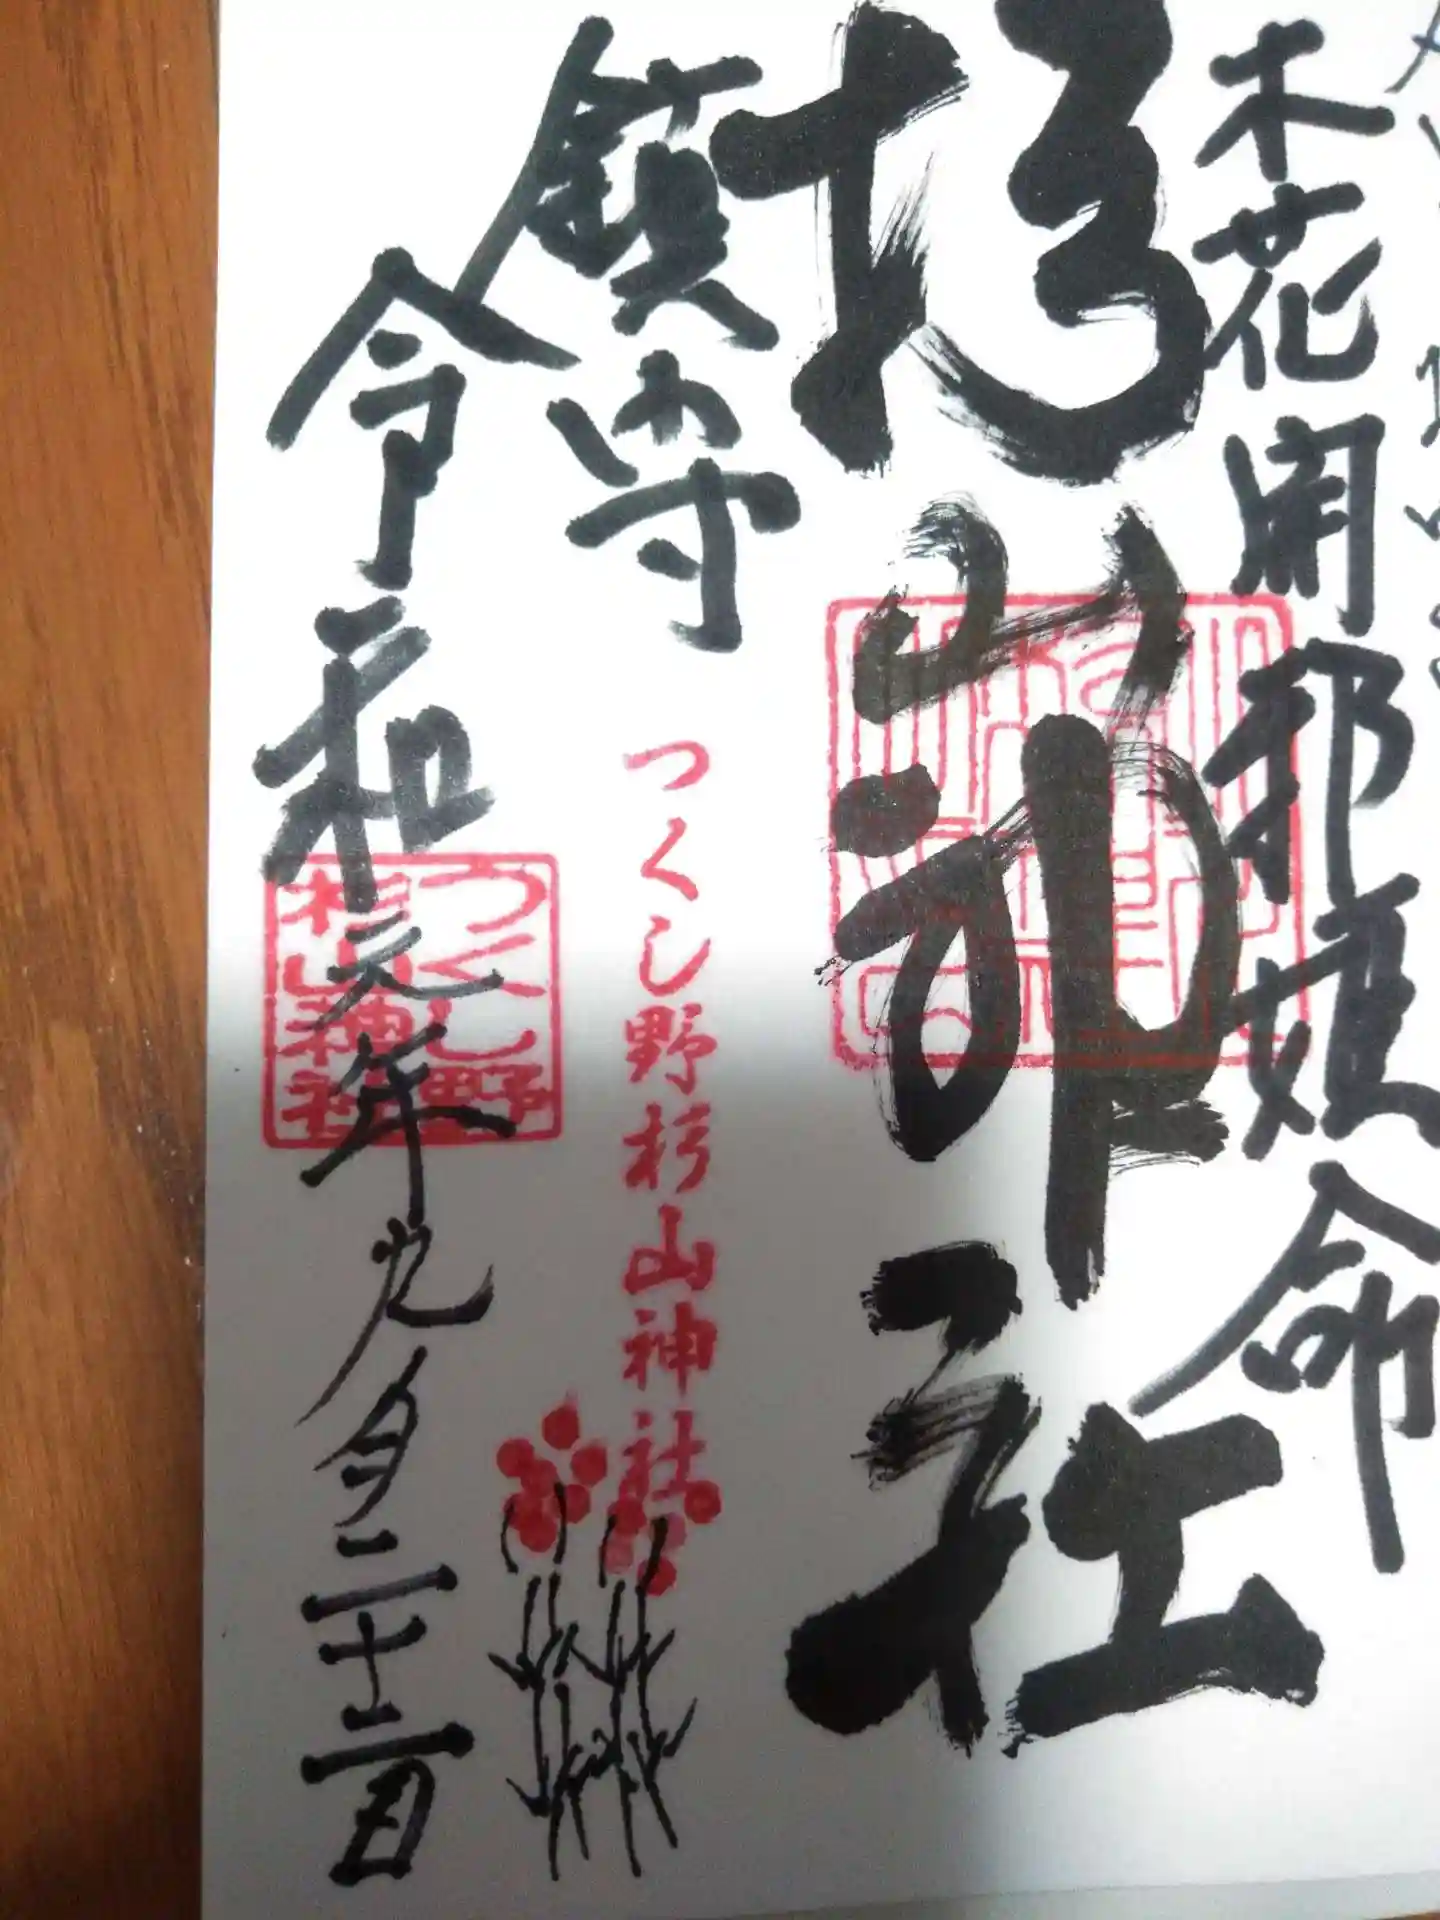 木花開耶姫命
杉山神社
鎮守
つくし野杉山神社
令和元年九月二十二日
つくし野
杉山神社